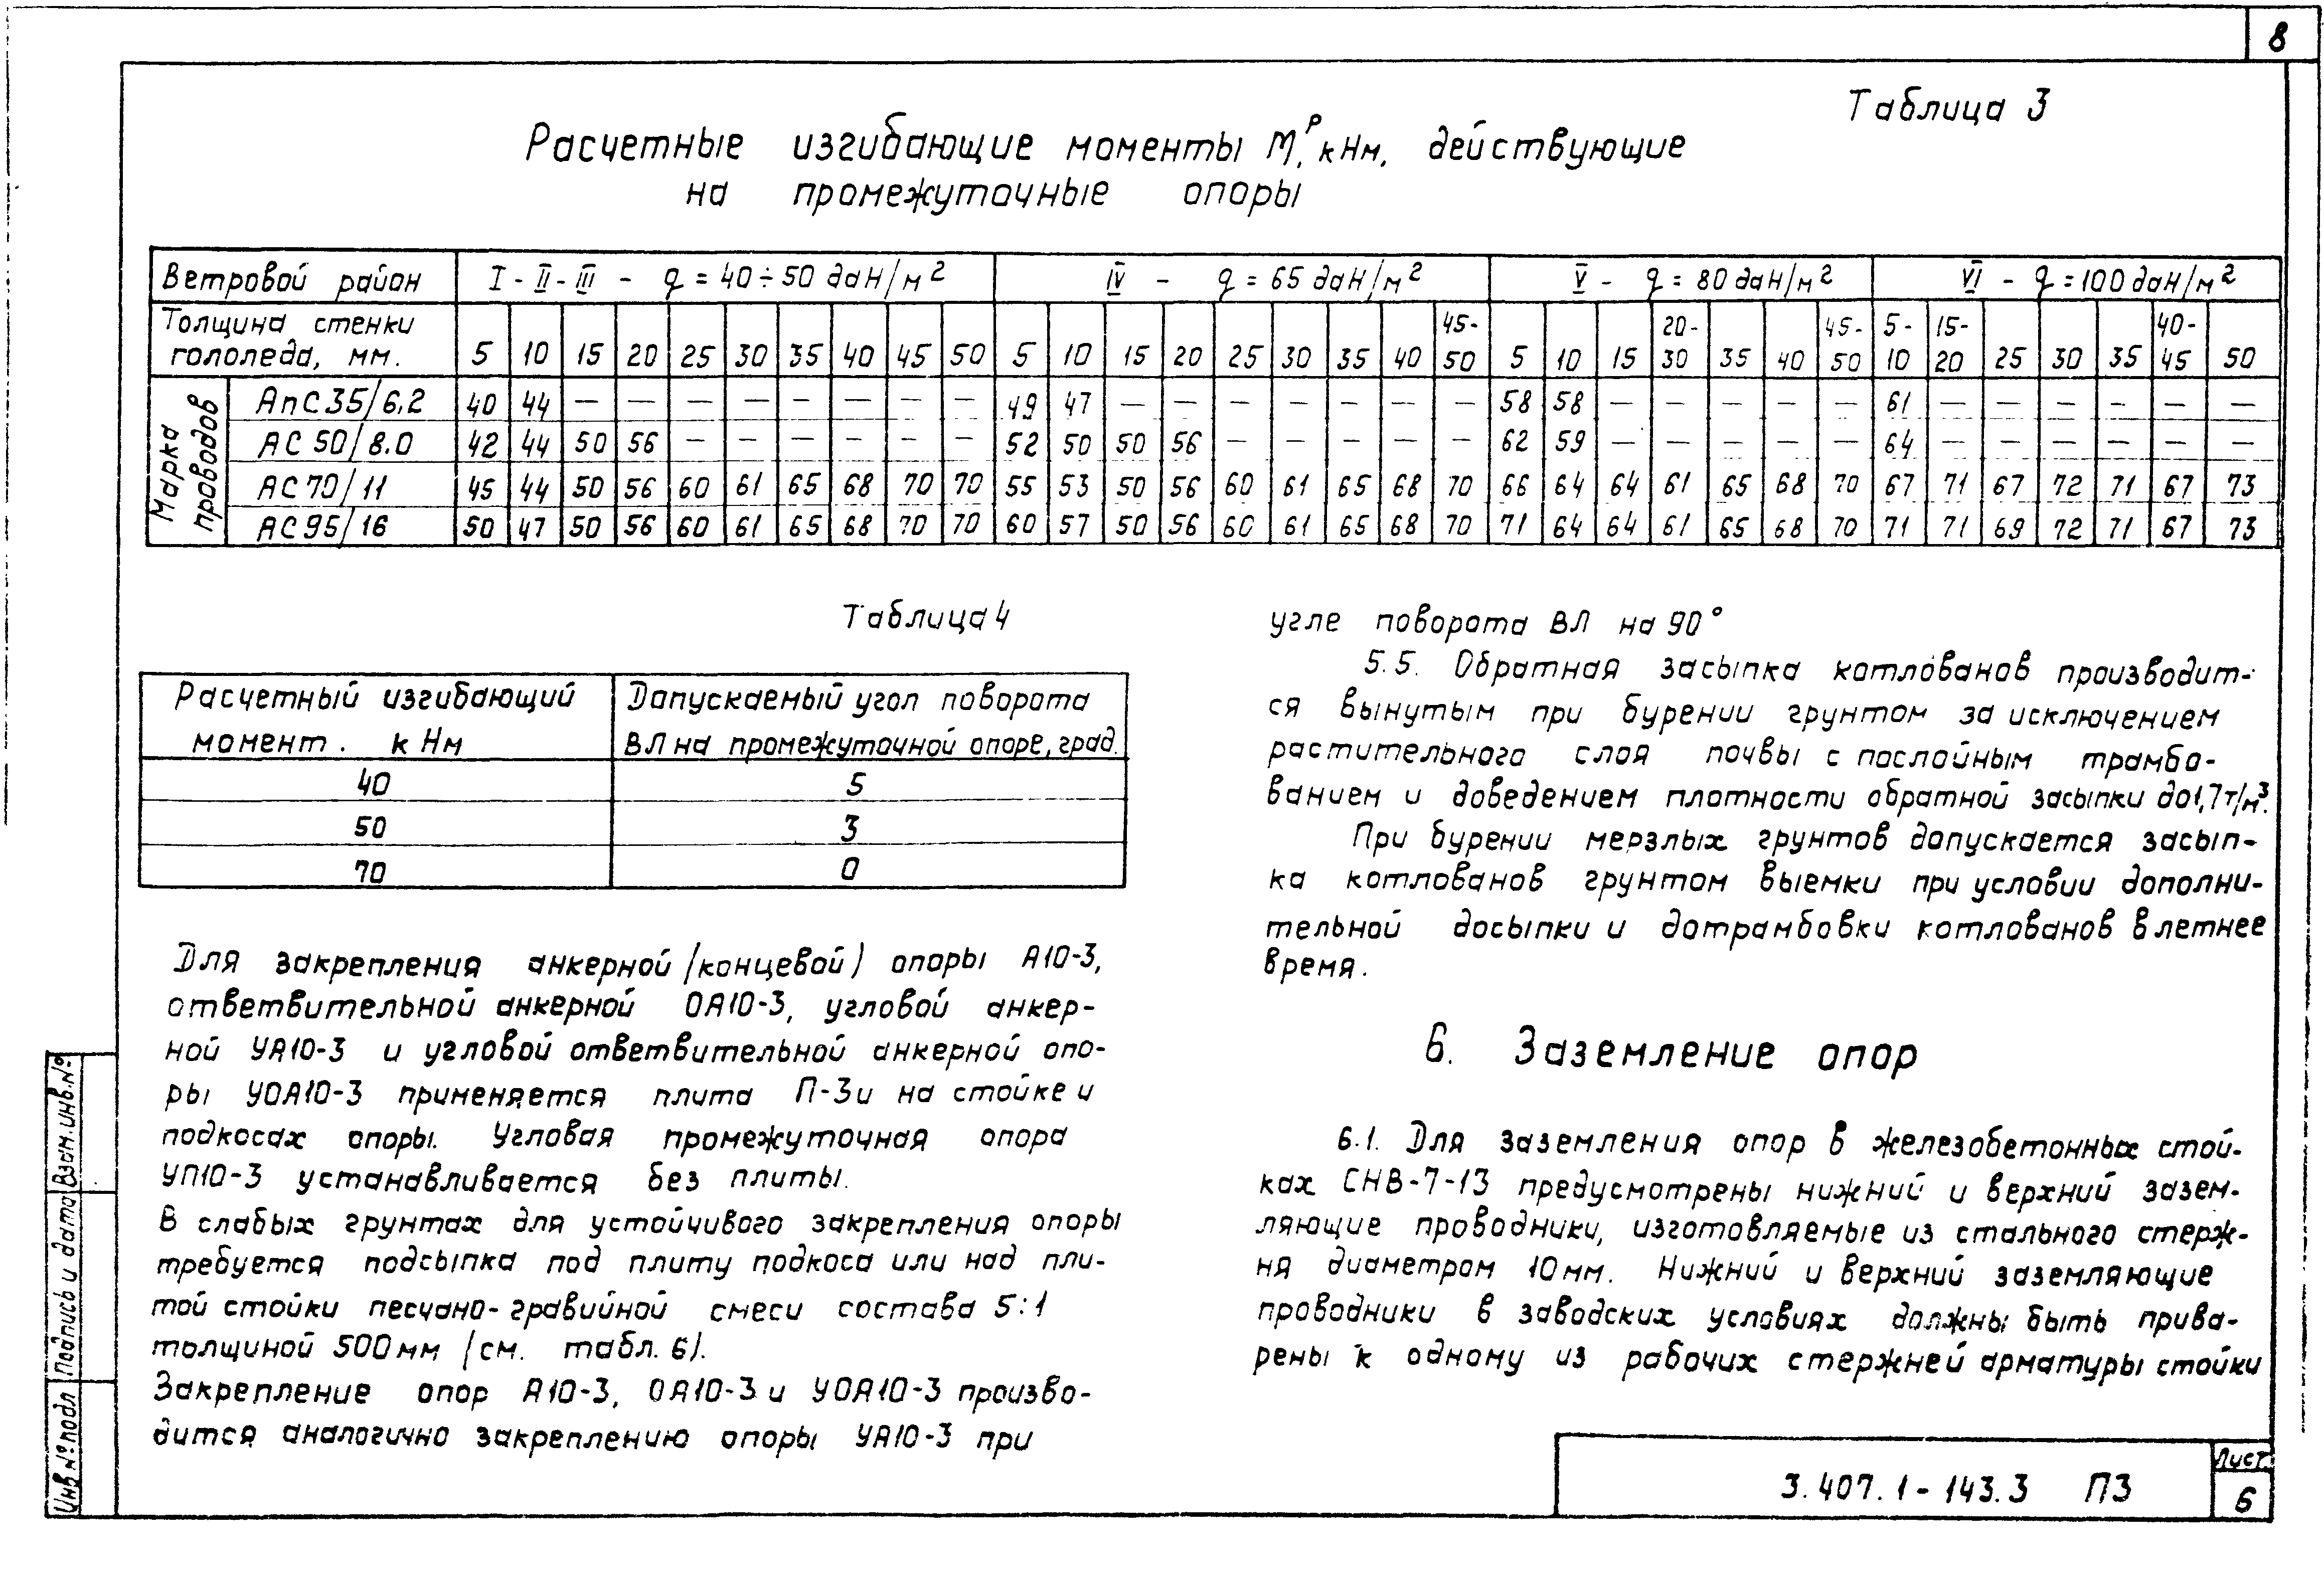 8
Таблица 3
Расчетные изгибающие моменты Мᵖ, кНм, действующие
на промежуточные опоры
Ветровой район I - II - III - q = 40÷50 даН/м² IV - q = 65 даН/м² V - q = 80 даН/м² VI - q = 100 даН/м²
Толщина стенки гололеда, мм. 5 10 15 20 25 30 35 40 45 50 5 10 15 20 25 30 35 40 45-50 5 10 15 20-30 35 40 45-50 5-10 15-20 25 30 35 40-45 50
Марка проводов
АпС35/6,2 40 44 — — — — — — — — 49 47 — — — — — — — 58 58 — — — — — 61 — — — — — —
АС 50/8.0 42 44 50 56 — — — — — — 52 50 50 56 — — — — — 62 59 — — — — — 64 — — — — — —
АС70/11 45 44 50 56 60 61 65 68 70 70 55 53 50 56 60 61 65 68 70 66 64 64 61 65 68 70 67 71 67 72 71 67 73
АС95/16 50 47 50 56 60 61 65 68 70 70 60 57 50 56 60 61 65 68 70 71 64 64 61 65 68 70 71 71 69 72 71 67 73
Таблица 4
Расчетный изгибающий момент. кНм Допускаемый угол поворота ВЛ на промежуточной опоре, град.
40 5
50 3
70 0
Для закрепления анкерной /концевой) опоры А10-3,
ответвительной анкерной ОА10-3, угловой анкер-
ной УА10-3 и угловой ответвительной анкерной опо-
ры УОА10-3 применяется плита П-3и на стойке и
подкосах опоры. Угловая промежуточная опора
УП10-3 устанавливается без плиты.
В слабых грунтах для устойчивого закрепления опоры
требуется подсыпка под плиту подкоса или над пли-
той стойки песчано-гравийной смеси состава 5:1
толщиной 500мм /см. табл. 6).
Закрепление опор А10-3, ОА10-3 и УОА10-3 произво-
дится аналогично закреплению опоры УА10-3 при
угле поворота ВЛ на 90°
5.5. Обратная засыпка котлованов производит-
ся вынутым при бурении грунтом за исключением
растительного слоя почвы с послойным трамбо-
ванием и доведением плотности обратной засыпки до 1,7т/м³.
При бурении мерзлых грунтов допускается засып-
ка котлованов грунтом выемки при условии дополни-
тельной досыпки и дотрамбовки котлованов в летнее
время.
6. Заземление опор
6.1. Для заземления опор в железобетонных стой-
ках СНВ-7-13 предусмотрены нижний и верхний зазем-
ляющие проводники, изготовляемые из стального стерж-
ня диаметром 10мм. Нижний и верхний заземляющие
проводники в заводских условиях должны быть прива-
рены к одному из рабочих стержней арматуры стойки
Инв № подл Подпись и дата Взам. инв. №
3.407.1-143.3 ПЗ
Лист
6